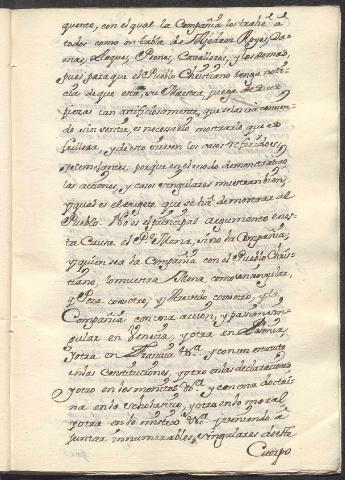 quente, con el qual la Compañia los trahe â
todos como en tabla de Aljedrez Reyes, Da-
mas, Roques, Peones, Cavalleros, y los demas,
pues para que el Pueblo Christiano tenga noti-
cia de que esta, su Maestra, juega
piezas tan artificiosamente, que se las va comien-
do sin sentir, es necesario mostrarle que es
fullera, y de esto sirven los casos referidos,
y semejantes, porque en el modo demonstrativo
las acciones, y casos singulares muestran bien,
y qual es el sugeto, que se hâ de mostrar al
Pueblo. No es el principal argumento en es-
ta Causa el P. Mena, sino la Compañia;
y quien sea la Compañia con el Pueblo Chris-
tiano, lo muestra Mena, como un singular,
y Poza como otro, y Azevedo como otro, y la
Compañia con una accion, y passion sin-
gular en Venecia, y otra en
y otra en Francia &a y con un estatuto
en las Constituciones, y otro en las declaraciones
y otro en los monitos &a y con una doctri-
na en lo scholastico, y otra en lo moral
y otra en lo mistico &a y poniendo â
juntar innumerables singulares de este
Cuerpo